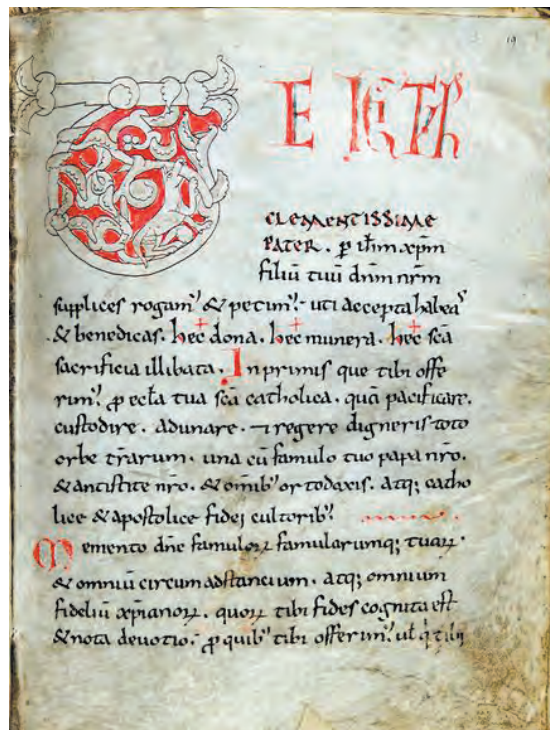 19
TE IGIT͛
CLEMENTISSIME
PATER . ꝑ ih̅m xp̅m
filiū tuū dn̅m nr̅m
supplices rogamꝰ & petimꝰ . uti accepta habeaſ
& benedicas . hec dona . hec munera . hec sc̅a
sacrificia illibata . In primis que tibi offe
rimꝰ ꝓ eccl̅a tua sc̅a catholica . quā pacificare .
custodire . adunare . ⁊ regere digneris toto
orbe tr̅arum . una cū famulo tuo papa nr̅o .
& antistite nr̅o . & om̅ibꝰ ortodoxis . atq; catho
lice & apostolice fidei cultoribꝰ
Memento dn̅e famuloꝝ famularumq; tuaꝝ .
& omniū circum adstancium . atq; omnium
fideliū xp̅ianoꝝ . quoꝝ tibi fides cognita est
& nota devotio . ꝓ quibꝰ tibi offerimꝰ ul̅ q̅i tibi